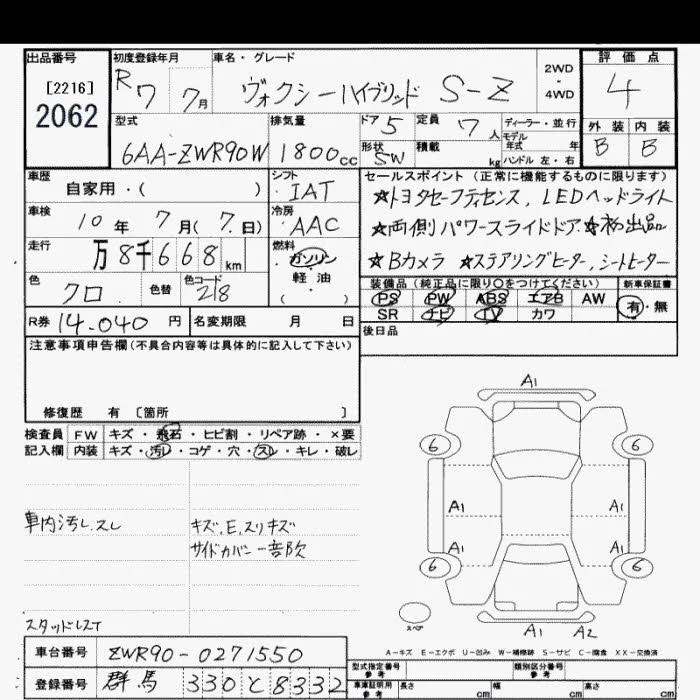 出品番号
[2216]
2062
初度登録年月
R7 7月
車名・グレード
ヴォクシーハイブリッド S-Z
2WD・4WD
評価点
4
型式
6AA-ZWR90W
排気量
1800cc
ドア 5
定員 7人
形状 SW
積載 kg
ディーラー・並行
モデル年式 年
ハンドル 左・右
外装 内装
B B
車歴
自家用・( )
シフト
IAT
車検
10年7月(7日)
冷房
AAC
走行
万8千668km
燃料
ガソリン・軽油・( )
色
クロ
色替
色コード
218
セールスポイント(正常に機能するものに限ります)
☆トヨタセーフティセンス, LEDヘッドライト
☆両側パワースライドドア ☆初出品
☆Bカメラ ☆ステアリングヒーター, シートヒーター
装備品(純正品に限り○をつけてください)
新車保証書
PS PW ABS エアB AW
SR ナビ TV カワ
有・無
後日品
R券 14.040円
名変期限 月 日
注意事項申告欄(不具合内容等は具体的に記入して下さい)
修復歴 有 [箇所 ]
検査員記入欄
FW キズ・飛石・ヒビ割・リペア跡・×要
内装 キズ・汚レ・コゲ・穴・スレ・キレ・破レ
車内汚レ.スレ
キズ.E.スリキズ
サイドカバー一部欠
スタッドレスT
A1
6 6
A1 A1
A1 A1
6 6
スペア
A1 A2
A-キズ E-エクボ U-凹み W-補修跡 S-サビ C-腐食 XX-交換済
車台番号
ZWR90-0271550
登録番号
群馬 330 と 8332
型式指定番号
参考
類別区分番号
参考
車庫証明用
参考
長さ cm 幅 cm 高さ cm